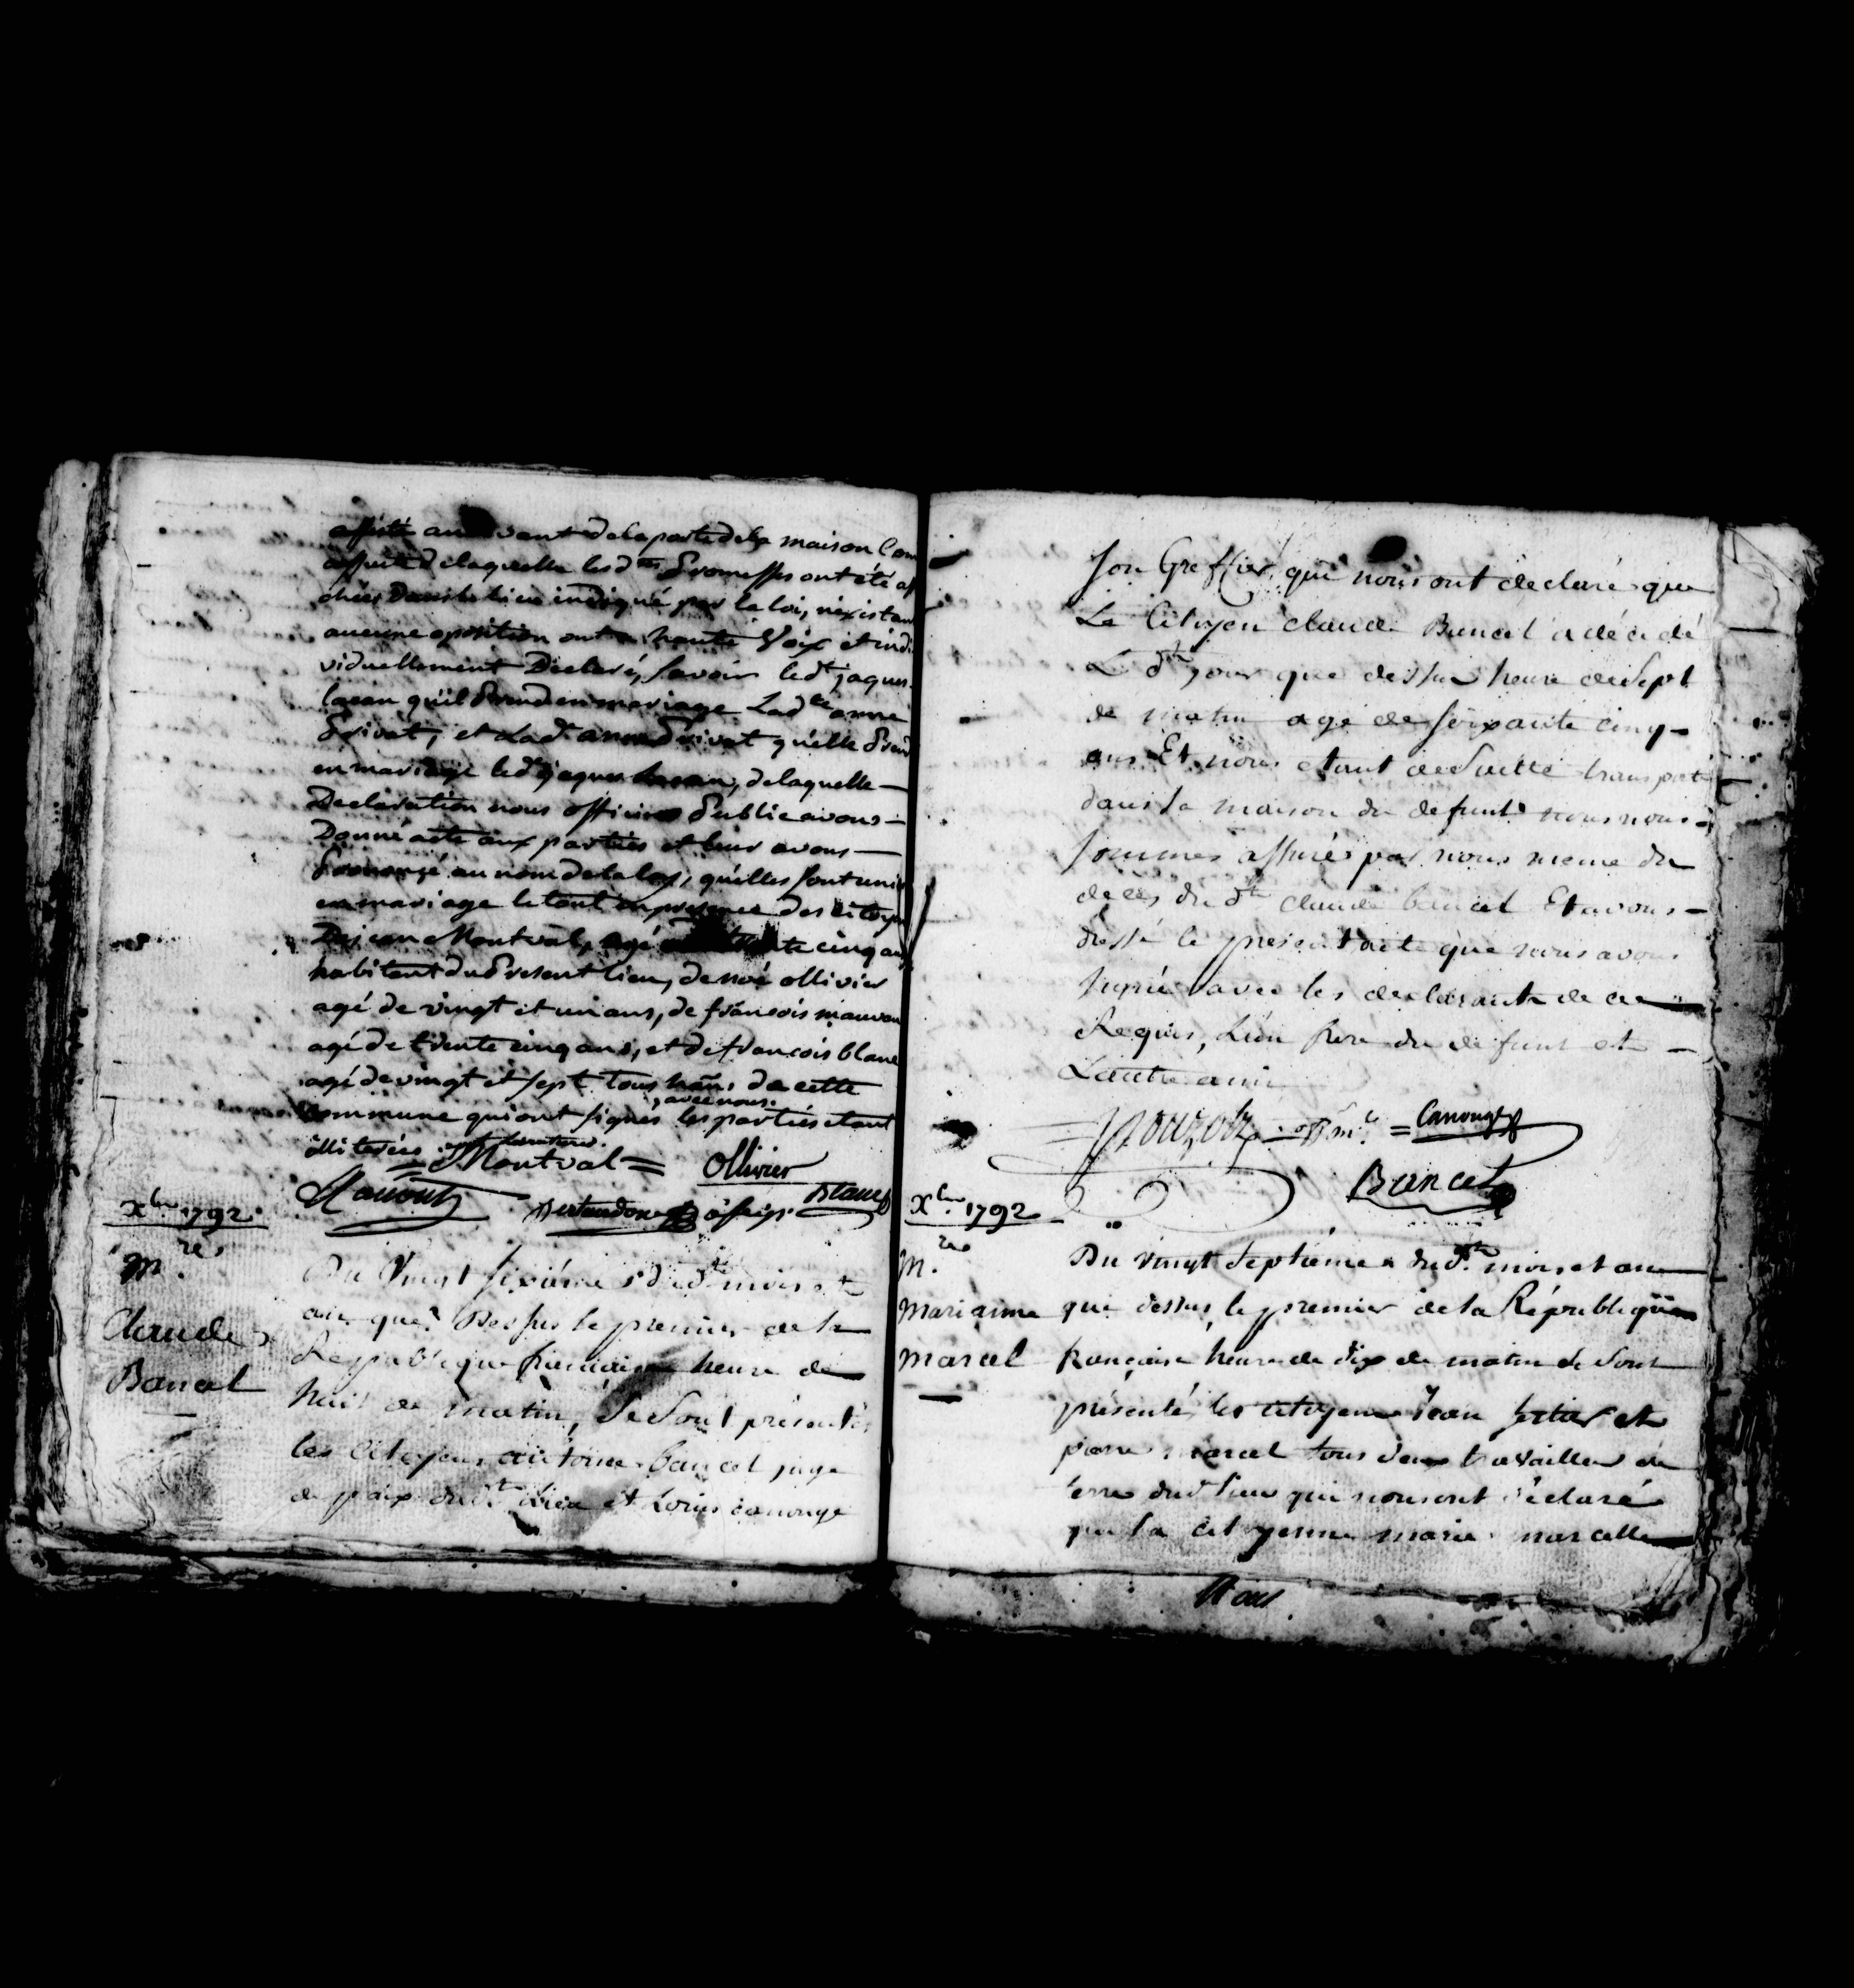 affiché au devant de la porte de la maison Com
assuite de laquelle les dtes Promesses ont été af
chées Dans le lieu indiqué par la loi, n'existan
aucune oposition ont a haute Voix et indi
viduellement Declaré, Savoir le dt jaques
lacan qu'il Prend en mariage Lad te anne
Privat, et Lad te anne Privat qu'elle Prend
en mariage led t jaques lacan, de laquelle
Declaration nous officier Public avons
Donné acte aux parties et leur avons
Prononçé au nom de la loy, qu'elles sont unies
en mariage le tout en presence des citoyens
Dejean Montval, agé trente cinq ans
habitant du Present lieu, de noé ollivier
agé de vingt et un ans, de francois
agé de trente cinq ans, et de francois blanc
agé de vingt et sept tous hans de cette
, avec nous.
commune qui ont signés les parties etant
illiterées
Montval = Ollivier
Bertrandon off Blanc
Xbre 1792.
M.re
Claude
Bancel
Du Vingt sixième dud t mois et
an que Dessus le premier de la
Republique francaise heure de
huit de matin, se sont présentés
les Citoyens antoine bancel juge
de paix dud t Lieu et Louis canonge
Son Greffier, qui nous ont declaré que
Le Citoyen claude Bancel a décédé
Le dt jour que dessus heure de sept
de matin agé de soixante cinq
ans Et nous etant de suitte transporté
dans la maison du defunt nous nous
sommes assurés par nous meme du
décès du dt claude bancel Et avons
dressé le present acte que nous avons
signé avec les declarants de ce
Requis, L'un frere du defunt et
L'autre ami
= off m. = Canonge
Bancel
Xbre 1792
M.re
Marianne
Marcel
Du vingt septième dud t mois et an
que dessus, le premier de la République
française heure de dix de matin se sont
présenté, les citoyens Jean et
pierre marcel tous deux travailleur de
terre dud t lieu qui nous ont déclaré
que la citoyenne marie marcelle